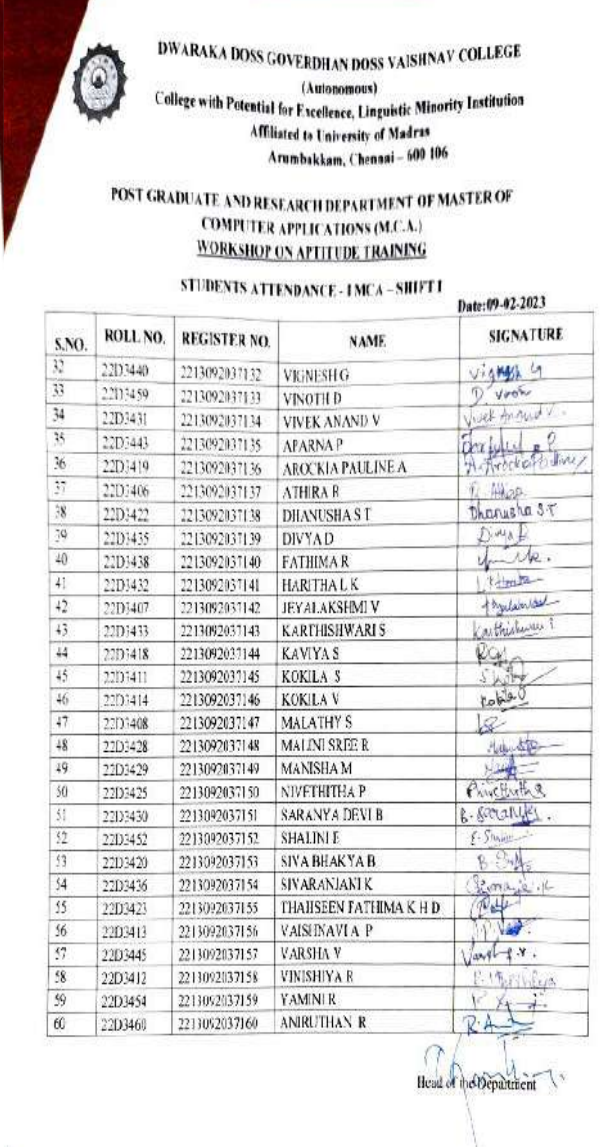 DWARAKA DOSS GOVERDHAN DOSS VAISHNAV COLLEGE
(Autonomous)
College with Potential for Excellence, Linguistic Minority Institution
Affiliated to University of Madras
Arumbakkam, Chennai – 600 106
POST GRADUATE AND RESEARCH DEPARTMENT OF MASTER OF
COMPUTER APPLICATIONS (M.C.A.)
WORKSHOP ON APTITUDE TRAINING
STUDENTS ATTENDANCE - I MCA – SHIFT I
Date:09-02-2023
S.NO. ROLL NO. REGISTER NO. NAME SIGNATURE
32 22D3440 2213092037132 VIGNESH G Vignesh G
33 22D3459 2213092037133 VINOTH D
34 22D3431 2213092037134 VIVEK ANAND V Vivek Anand V.
35 22D3443 2213092037135 APARNA P
36 22D3419 2213092037136 AROCKIA PAULINE A
37 22D3406 2213092037137 ATHIRA R
38 22D3422 2213092037138 DHANUSHA S T Dhanusha S.T
39 22D3435 2213092037139 DIVYA D Divya D
40 22D3438 2213092037140 FATHIMA R
41 22D3432 2213092037141 HARITHA L K
42 22D3407 2213092037142 JEYALAKSHMI V
43 22D3433 2213092037143 KARTHISHWARI S
44 22D3418 2213092037144 KAVIYA S
45 22D3411 2213092037145 KOKILA S
46 22D3414 2213092037146 KOKILA V
47 22D3408 2213092037147 MALATHY S
48 22D3428 2213092037148 MALINI SREE R
49 22D3429 2213092037149 MANISHA M
50 22D3425 2213092037150 NIVETHITHA P
51 22D3430 2213092037151 SARANYA DEVI B
52 22D3452 2213092037152 SHALINI E
53 22D3420 2213092037153 SIVA BHAKYA B
54 22D3436 2213092037154 SIVARANJANI K
55 22D3423 2213092037155 THAHSEEN FATHIMA K H D
56 22D3413 2213092037156 VAISHNAVI A P
57 22D3445 2213092037157 VARSHA V
58 22D3412 2213092037158 VINISHIYA R
59 22D3454 2213092037159 YAMINI R
60 22D3460 2213092037160 ANIRUTHAN R
Head of the Department